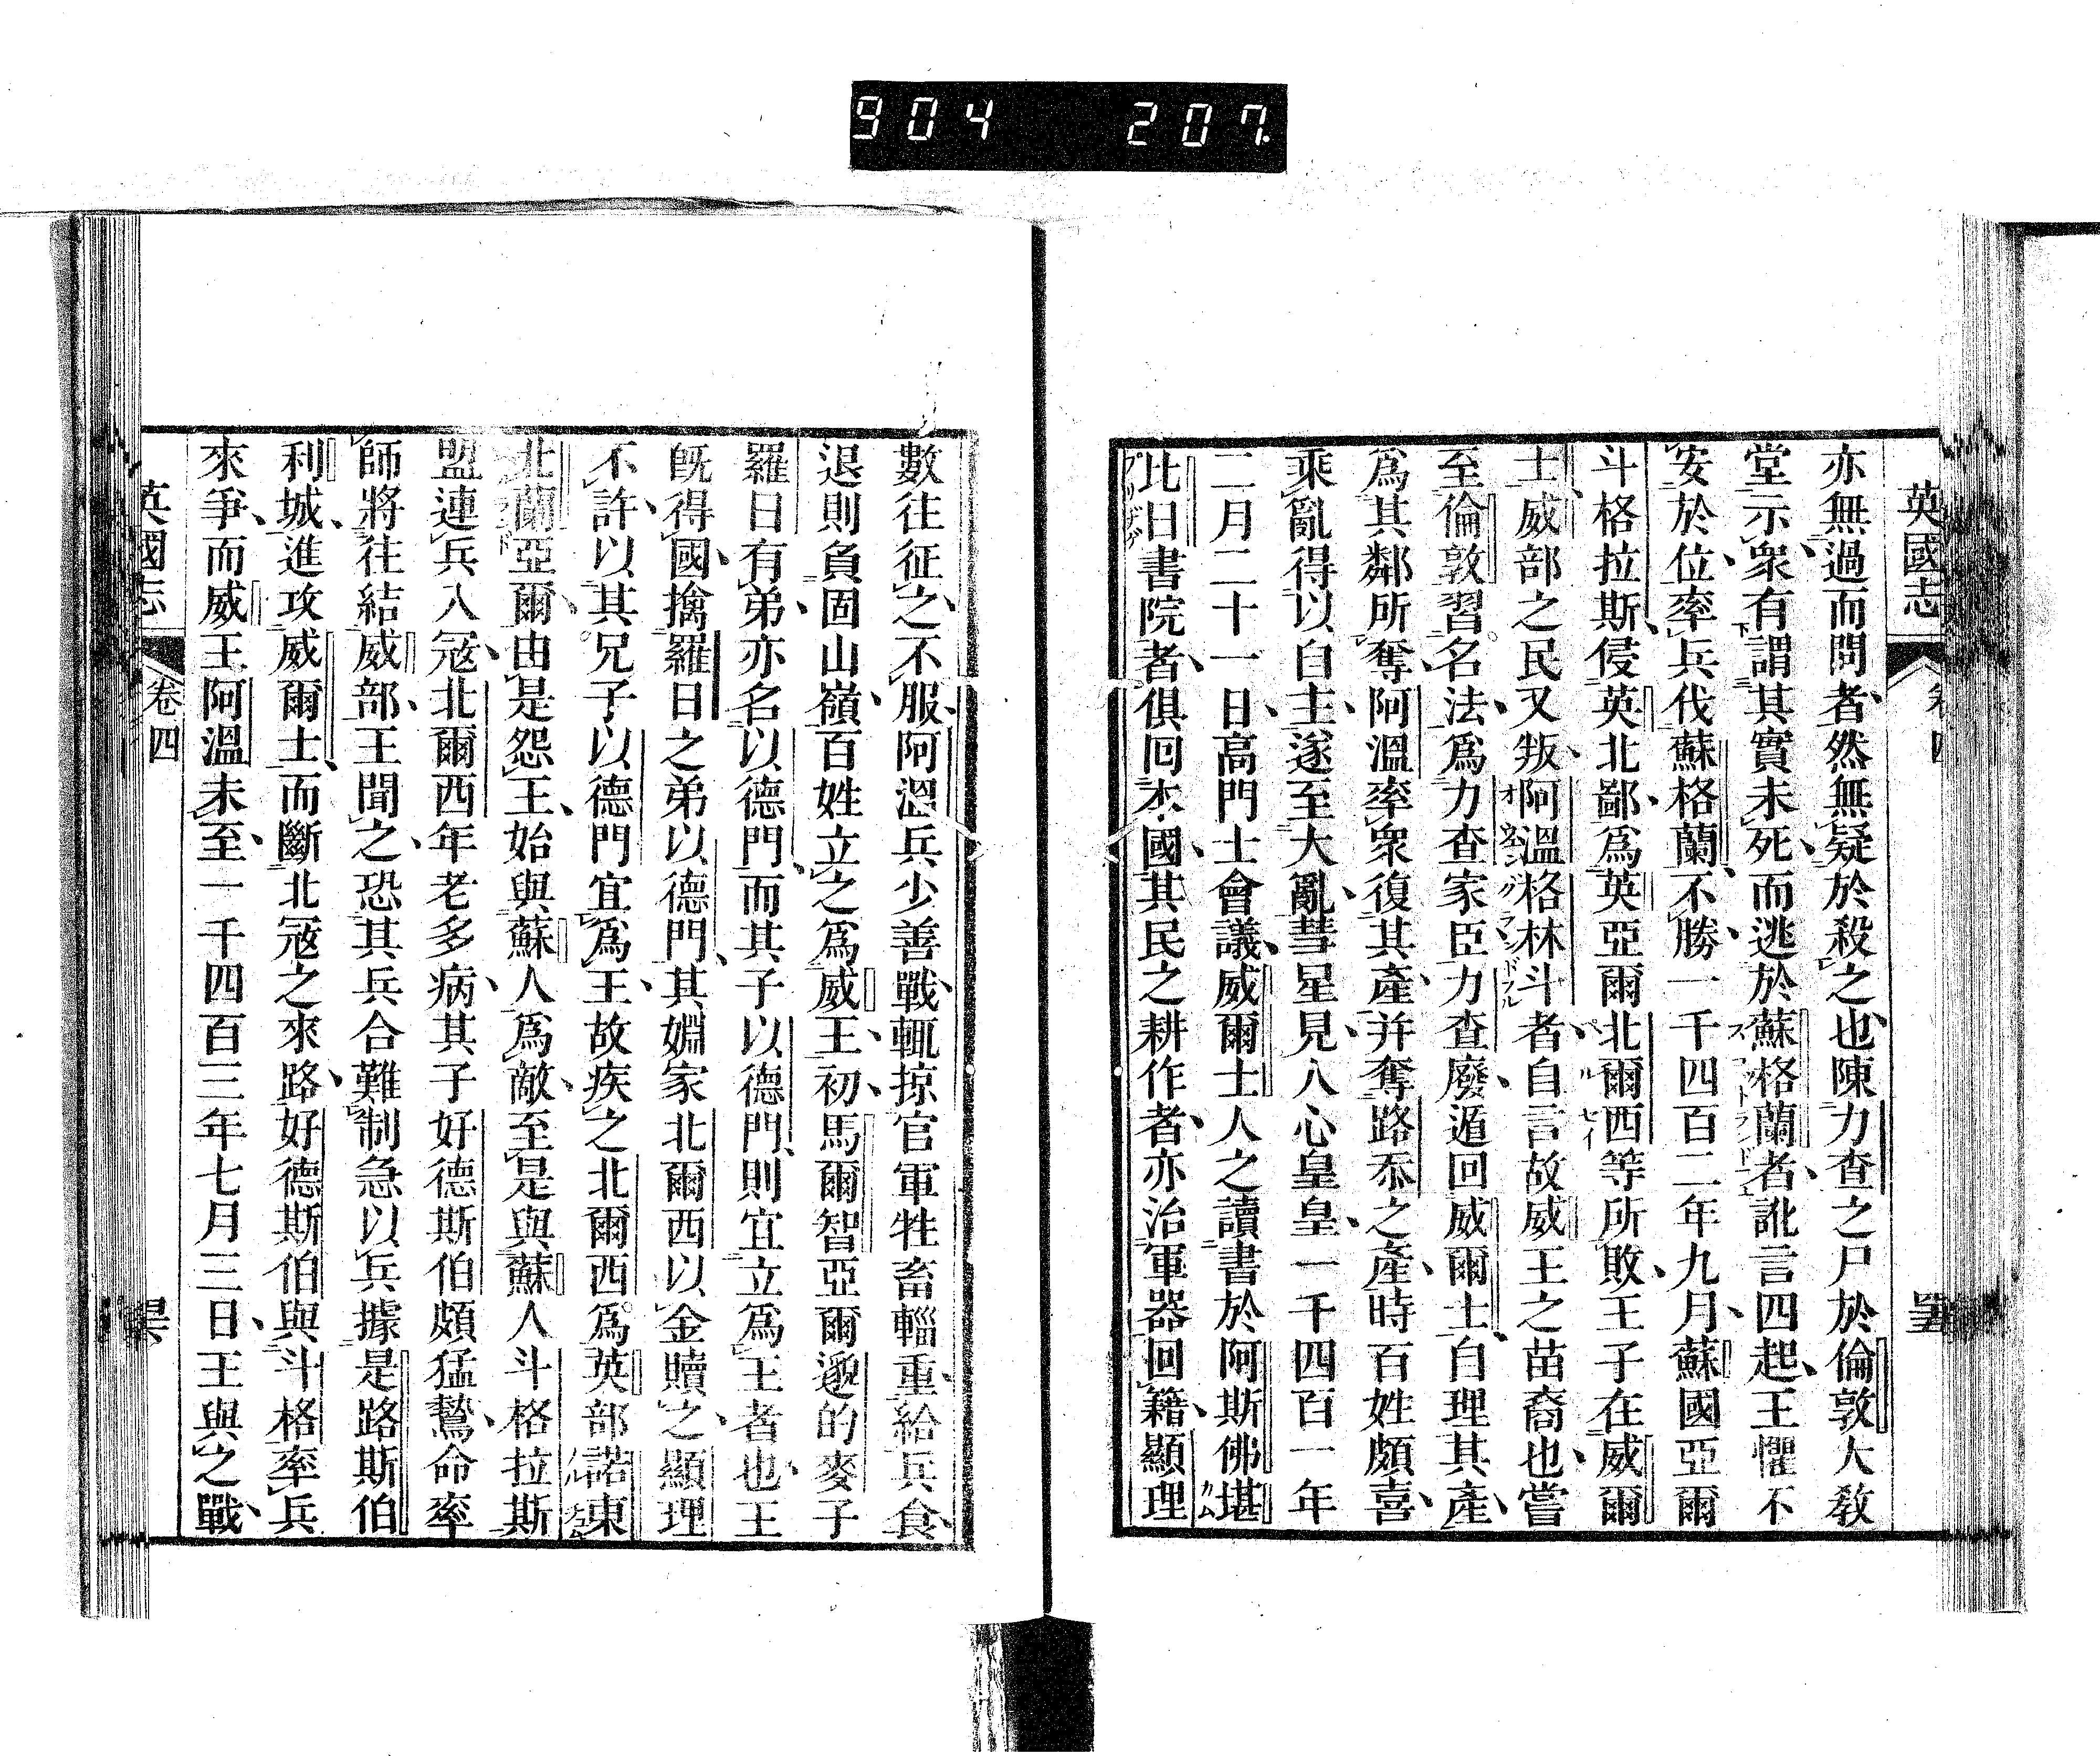 904 207
英國志
卷四
亦無過而問者然無疑於殺之也陳力查之尸於倫敦大敎
堂示衆有謂其實未死而逃於蘇格蘭者訛言四起王懼不
安於位率兵伐蘇格蘭不勝一千四百二年九月蘇國亞爾
斗格拉斯侵英北鄙爲英亞爾北爾西等所敗王子在威爾
士威部之民又叛阿溫格林斗者自言故威王之苗裔也嘗
至倫敦習名法爲力查家臣力查廢遁回威爾士自理其產
爲其鄰所奪阿溫率衆復其產并奪路忝之產時百姓頗喜
乘亂得以自主遂至大亂彗星見人心皇皇一千四百一年
二月二十一日高門士會議威爾士人之讀書於阿斯佛堪
比日書院者俱回本國其民之耕作者亦治軍器回籍顯理
數往征之不服阿溫兵少善戰輒掠官軍牲畜輜重給兵食
退則負固山嶺百姓立之爲威王初馬爾智亞爾邇的麥子
羅日有弟亦名以德門而其子以德門則宜立爲王者也王
旣得國擒羅日之弟以德門其婣家北爾西以金贖之顯理
不許以其兄子以德門宜爲王故疾之北爾西爲英部諾東
北蘭亞爾由是怨王始與蘇人爲敵至是與蘇人斗格拉斯
盟連兵入寇北爾西年老多病其子好德斯伯頗猛鷙命率
師將往結威部王聞之恐其兵合難制急以兵據是路斯伯
利城進攻威爾士而斷北寇之來路好德斯伯與斗格率兵
來爭而威王阿溫未至一千四百三年七月三日王與之戰
英國志
卷四